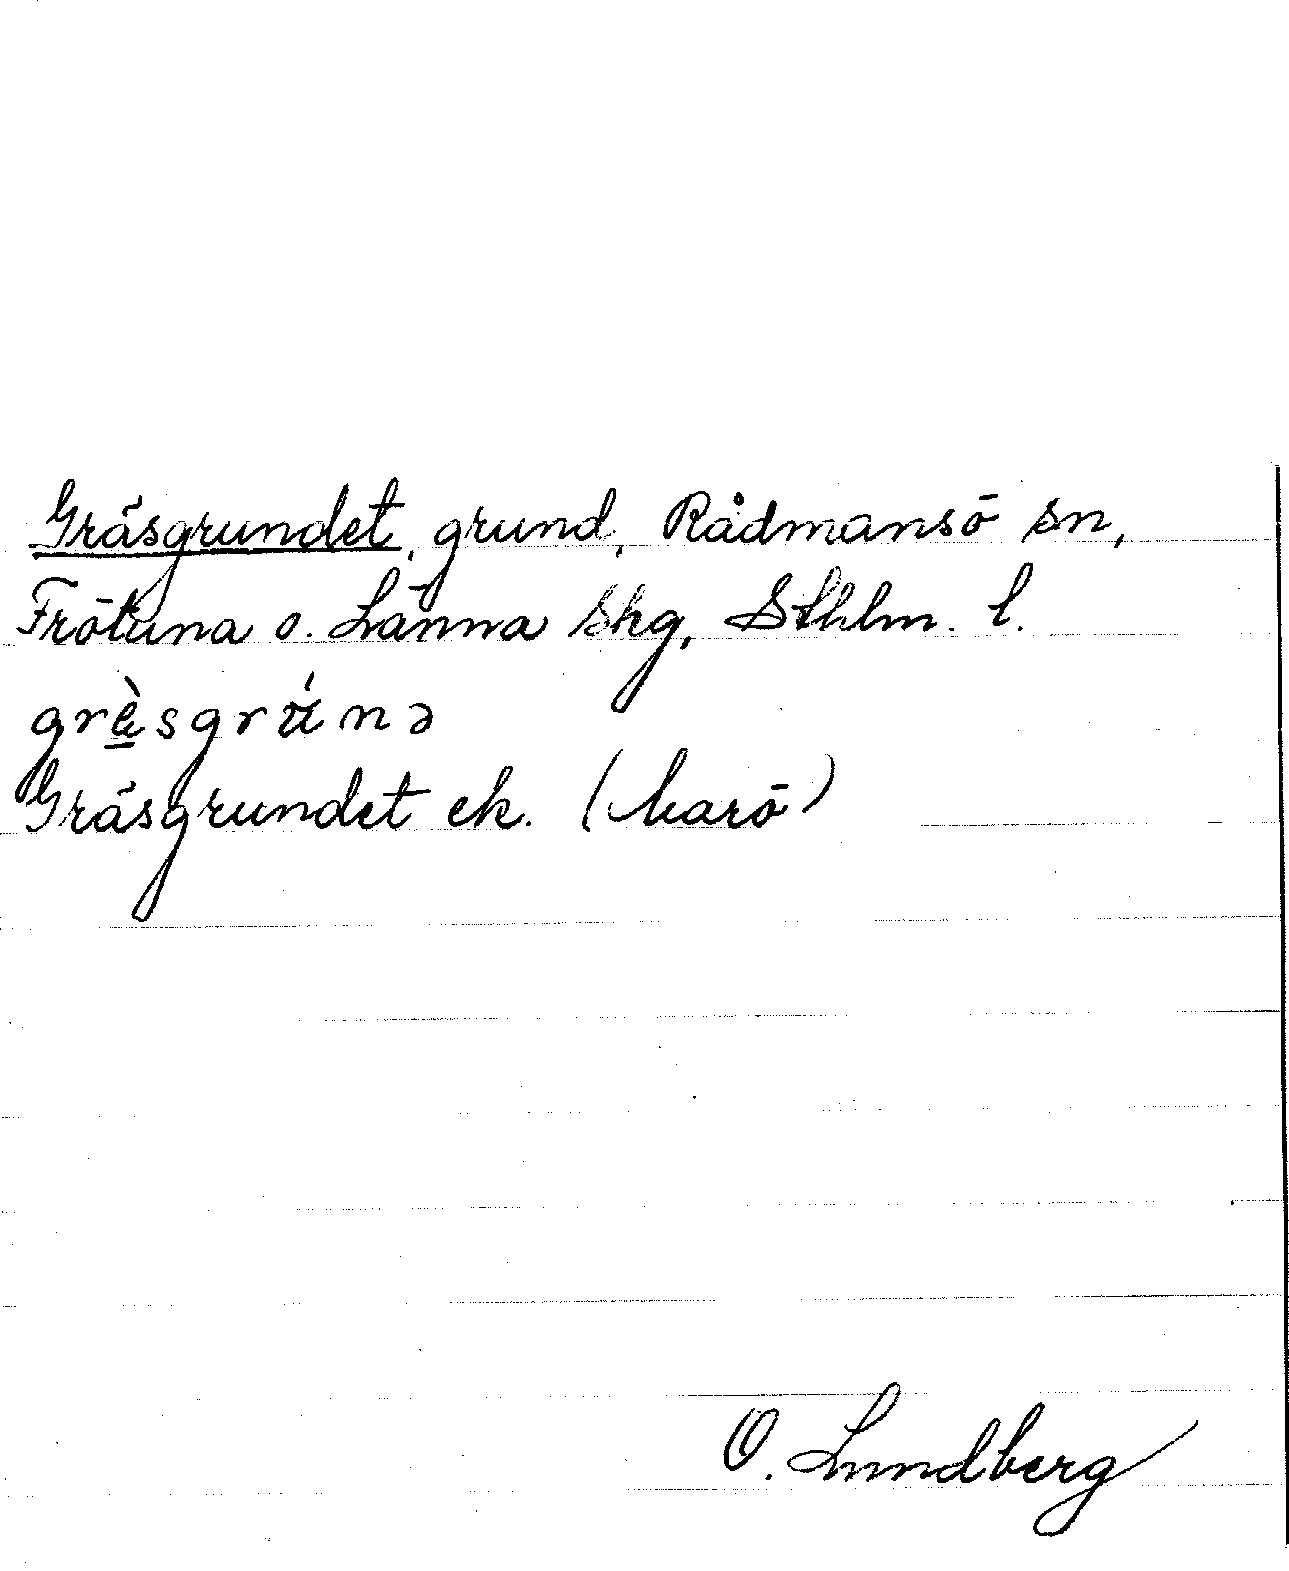 Gräsgrundet, grund, Rådmansö sn,
Frötuna o. Länna Skg, Sthlm. l.
grèsgrúnə
Gräsgrundet ek. (Marö)
O. Lundberg